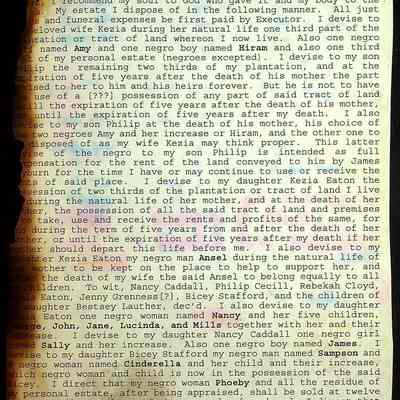 recommend my soul to God who gave it and my body to the
My estate I dispose of in the following manner. All just
and funeral expenses be first paid by Executor. I devise to
loved wife Kezia during her natural life one third part of the
ntation or tract of land whereon I now live. Also one negro
named Amy and one negro boy named Hiram and also one third
of my personal estate (negroes excepted). I devise to my son
ip the remaining two thirds of my plantation, and at the
ration of five years after the death of his mother the part
sed to her to him and his heirs forever. But he is not to have
use of a [???] possession of any part of said tract of land
ll the expiration of five years after the death of his mother,
until the expiration of five years after my death. I also
to my son Philip at the death of his mother, his choice of
o negroes Amy and her increase or Hiram, and the other to
sposed of as my wife Kezia may think proper. This latter
se of the negro to my son Philip is intended as full
ensation for the rent of the land conveyed to him by James
urn for the time I have or may continue to use or receive the
s of said place. I devise to my daughter Kezia Eaton the
session of two thirds of the plantation or tract of land I live
uring the natural life of her mother, and at the death of her
her, the possession of all the said tract of land and premises
take, use and receive the rents and profits of the same, for
during the term of five years from and after the death of her
her, or until the expiration of five years after my death if her
her should depart this life before me. I also devise to my
hter Kezia Eaton my negro man Ansel during the natural life of
mother to be kept on the place to help to support her, and
the death of my wife the said Ansel to belong equally to all
ildren. To wit, Nancy Caddall, Philip Cecill, Rebekah Cloyd,
Eaton, Jenny Grenness[?], Bicey Stafford, and the children of
ughter Bestsey Lauther, dec'd. I also devise to my daughter
Eaton one negro woman named Nancy and her five children,
ge, John, Jane, Lucinda, and Mills together with her and their
ase. I devise to my daughter Nancy Caddall one negro girl
Sally and her increase. Also one negro boy named James. I
ise to my daughter Bicey Stafford my negro man named Sampson and
woman named Cinderella and her child and their increase,
ch negro woman and child is now in the possession of the said
icey. I direct that my negro woman Phoebe and all the residue of
personal estate, after being appraised, shall be sold at twelve